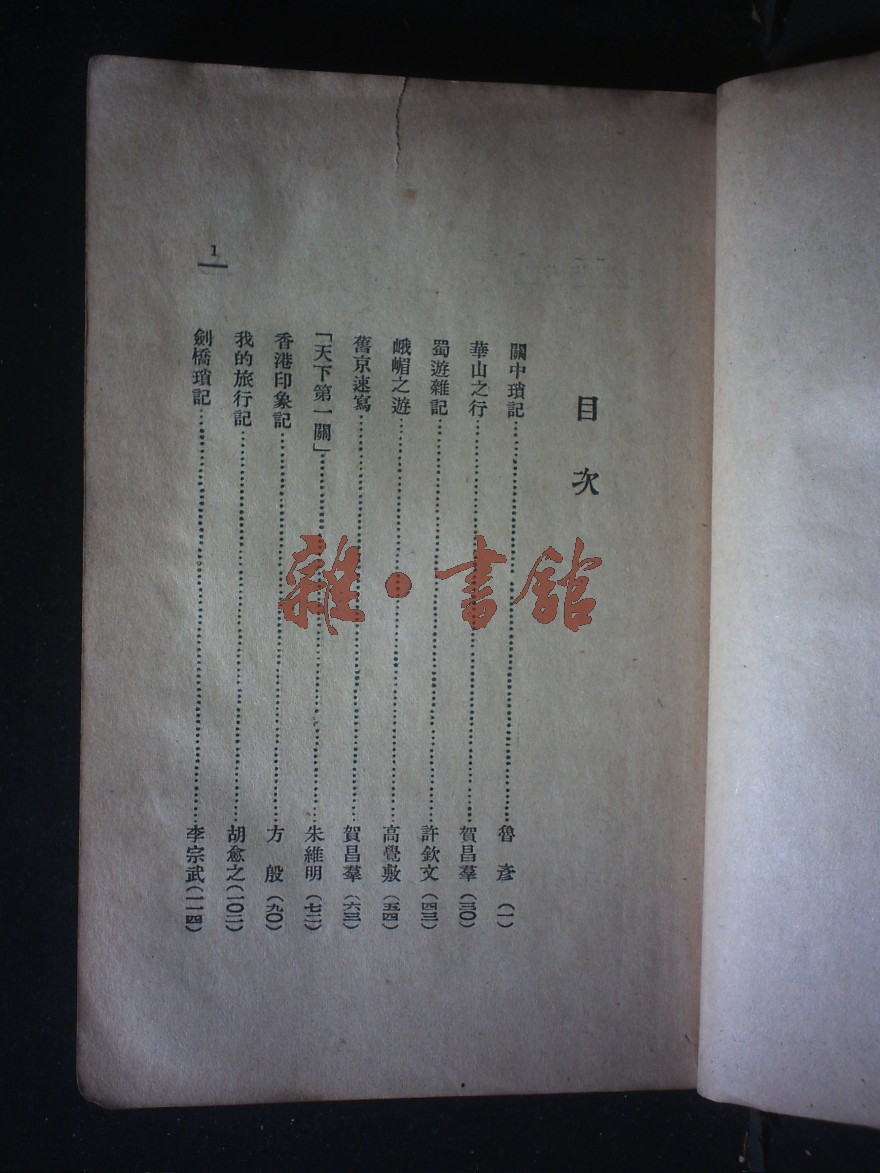 目次
關中瑣記……魯彥(一)
華山之行……賀昌羣(三〇)
蜀遊雜記……許欽文(四三)
峨嵋之遊……高覺敷(五四)
舊京速寫……賀昌羣(六三)
「天下第一關」……朱維明(七二)
香港印象記……方殷(九〇)
我的旅行記……胡愈之(一〇二)
劍橋瑣記……李宗武(一一四)
1
雜·書館